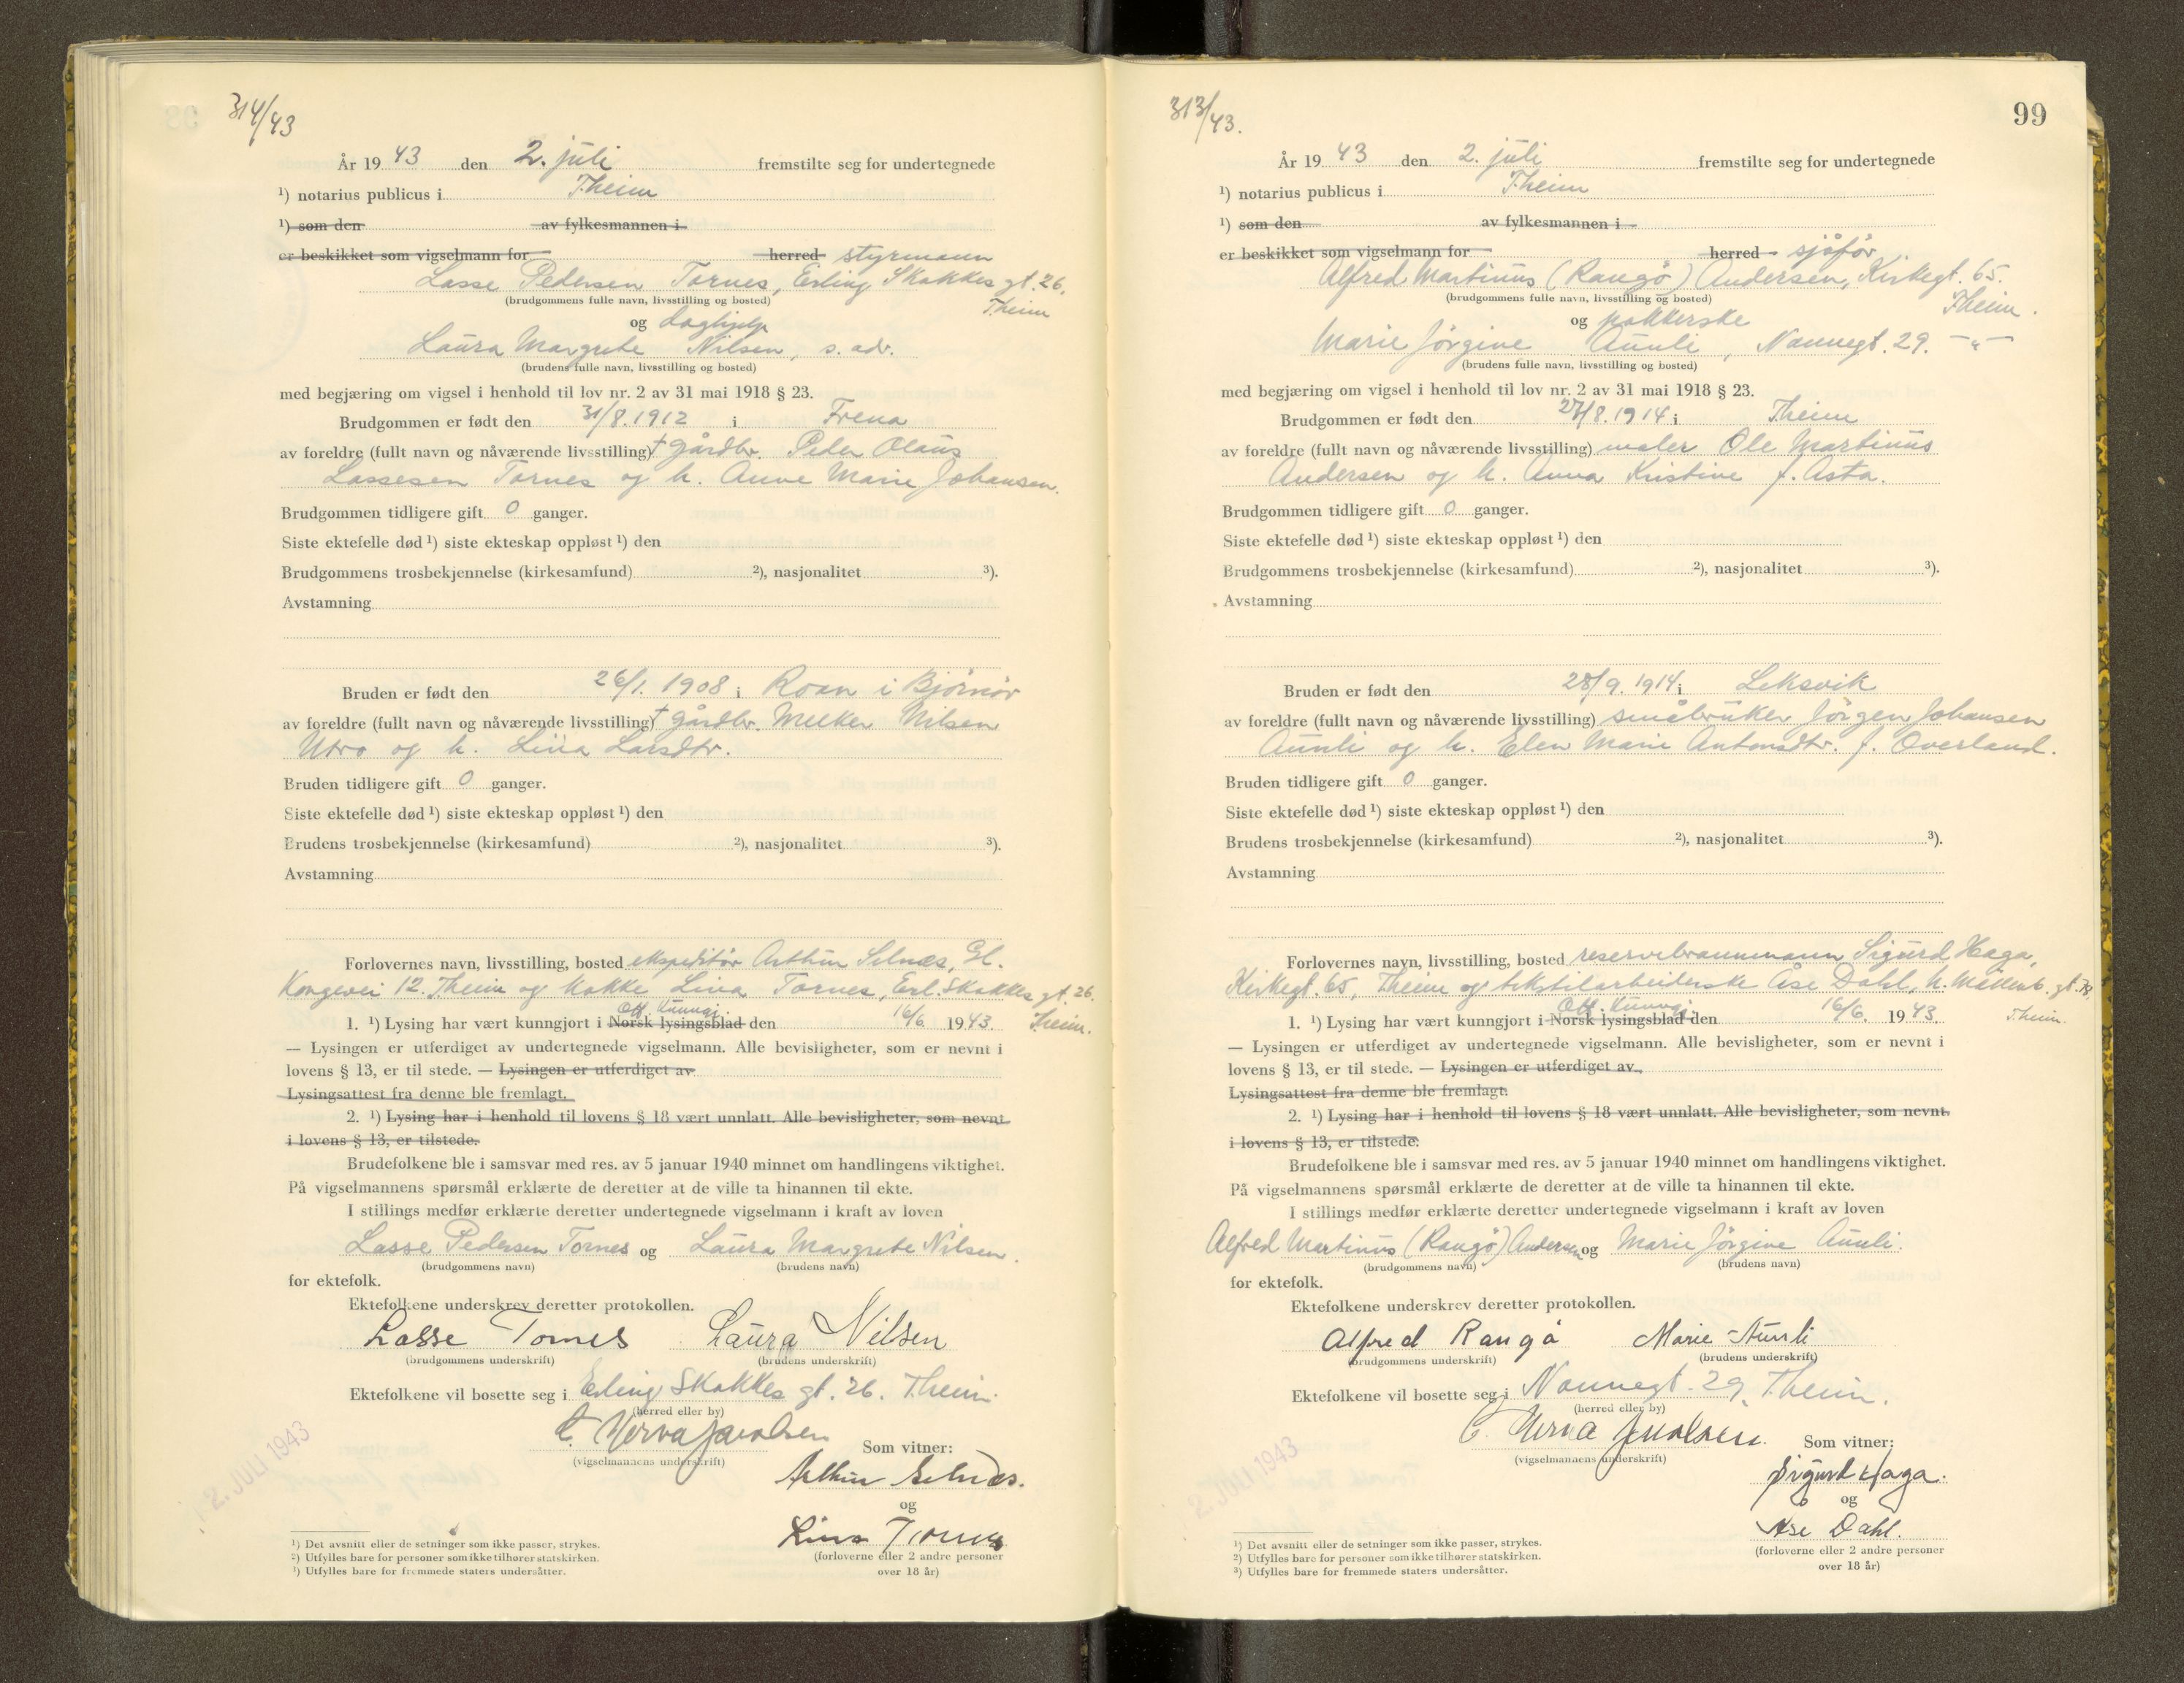 314/43
År 1943 den 2. juli fremstilte seg for undertegnede
¹) notarius publicus i T.heim
¹) som den av fylkesmannen i
er beskikket som vigselmann for herred styrmann
Lasse Pedersen Tornes, Erling Skakkes gt. 26,
(brudgommens fulle navn, livsstilling og bosted) T.heim
og daghjelp
Laura Margrete Nilsen, s. adr.
(brudens fulle navn, livsstilling og bosted)
med begjæring om vigsel i henhold til lov nr. 2 av 31 mai 1918 § 23.
Brudgommen er født den 31/8.1912 i Frena
av foreldre (fullt navn og nåværende livsstilling) † gårdbr. Peder Olaus
Lassesen Tornes og h. Anne Marie Johansen.
Brudgommen tidligere gift 0 ganger.
Siste ektefelle død ¹) siste ekteskap oppløst ¹) den
Brudgommens trosbekjennelse (kirkesamfund) ²), nasjonalitet ³).
Avstamning
Bruden er født den 26/1. 1908 i Roan i Bjørnør
av foreldre (fullt navn og nåværende livsstilling) † gårdbr. Melker Nilsen
Utro og h. Lina Larsdtr.
Bruden tidligere gift 0 ganger.
Siste ektefelle død ¹) siste ekteskap oppløst ¹) den
Brudens trosbekjennelse (kirkesamfund) ²), nasjonalitet ³).
Avstamning
Forlovernes navn, livsstilling, bosted ekspeditør Arthur Selnæs, Gl.
Kongevei 12. T.heim og kokke Lina Tornes, Erl. Skakkes gt. 26.
Off. Kunngj.
1. ¹) Lysing har vært kunngjort i Norsk lysingsblad den 16/6 1943. T.heim.
— Lysingen er utferdiget av undertegnede vigselmann. Alle bevisligheter, som er nevnt i
lovens § 13, er til stede. — Lysingen er utferdiget av
Lysingsattest fra denne ble fremlagt.
2. ¹) Lysing har i henhold til lovens § 18 vært unnlatt. Alle bevisligheter, som nevnt
i lovens § 13, er tilstede.
Brudefolkene ble i samsvar med res. av 5 januar 1940 minnet om handlingens viktighet.
På vigselmannens spørsmål erklærte de deretter at de ville ta hinannen til ekte.
I stillings medfør erklærte deretter undertegnede vigselmann i kraft av loven
Lasse Pedersen Tornes og Laura Margrete Nilsen.
(brudgommens navn) (brudens navn)
for ektefolk.
Ektefolkene underskrev deretter protokollen.
Lasse Tornes Laura Nilsen
(brudgommens underskrift) (brudens underskrift)
Ektefolkene vil bosette seg i Erling Skakkes gt. 26. T.heim.
(herred eller by)
Som vitner:
(vigselmannens underskrift)
Arthur Selnæs.
2. JULI 1943
og
Lina Tornes
(forloverne eller 2 andre personer
over 18 år)
¹) Det avsnitt eller de setninger som ikke passer, strykes.
²) Utfylles bare for personer som ikke tilhører statskirken.
³) Utfylles bare for fremmede staters undersåtter.
313/43.
99
År 1943 den 2. juli fremstilte seg for undertegnede
¹) notarius publicus i T.heim
¹) som den av fylkesmannen i
er beskikket som vigselmann for herred sjåfør
Alfred Martinus (Rangø) Andersen, Kirkegt. 65.
(brudgommens fulle navn, livsstilling og bosted) T.heim.
og pakkerske
Marie Jørgine Aunli, Nannegt. 29. — " —
(brudens fulle navn, livsstilling og bosted)
med begjæring om vigsel i henhold til lov nr. 2 av 31 mai 1918 § 23.
Brudgommen er født den 27/8.1914 i T.heim
av foreldre (fullt navn og nåværende livsstilling) maler Ole Martinus
Andersen og h. Anna Kristine f. Asta.
Brudgommen tidligere gift 0 ganger.
Siste ektefelle død ¹) siste ekteskap oppløst ¹) den
Brudgommens trosbekjennelse (kirkesamfund) ²), nasjonalitet ³).
Avstamning
Bruden er født den 28/9. 1914 i Leksvik
av foreldre (fullt navn og nåværende livsstilling) småbruker Jørgen Johansen
Aunli og h. Elen Marie Antonsdtr. f. Overland.
Bruden tidligere gift 0 ganger.
Siste ektefelle død ¹) siste ekteskap oppløst ¹) den
Brudens trosbekjennelse (kirkesamfund) ²), nasjonalitet ³).
Avstamning
Forlovernes navn, livsstilling, bosted reservebrannmann Sigurd Haga,
Kirkegt. 65, T.heim og tekstilarbeiderske Åse Dahl, N. Møllenb. gt.
Off. Kunngj.
1. ¹) Lysing har vært kunngjort i Norsk lysingsblad den 16/6. 1943. T.heim.
— Lysingen er utferdiget av undertegnede vigselmann. Alle bevisligheter, som er nevnt i
lovens § 13, er til stede. — Lysingen er utferdiget av
Lysingsattest fra denne ble fremlagt.
2. ¹) Lysing har i henhold til lovens § 18 vært unnlatt. Alle bevisligheter, som nevnt.
i lovens § 13, er tilstede.
Brudefolkene ble i samsvar med res. av 5 januar 1940 minnet om handlingens viktighet.
På vigselmannens spørsmål erklærte de deretter at de ville ta hinannen til ekte.
I stillings medfør erklærte deretter undertegnede vigselmann i kraft av loven
Alfred Martinus (Rangø) Andersen og Marie Jørgine Aunli.
(brudgommens navn) (brudens navn)
for ektefolk.
Ektefolkene underskrev deretter protokollen.
Alfred Rangø Marie Aunli
(brudgommens underskrift) (brudens underskrift)
Ektefolkene vil bosette seg i Nannegt. 29, T.heim.
(herred eller by)
Som vitner:
(vigselmannens underskrift)
Sigurd Haga.
2. JULI 1943
og
Åse Dahl.
(forloverne eller 2 andre personer
over 18 år)
¹) Det avsnitt eller de setninger som ikke passer, strykes.
²) Utfylles bare for personer som ikke tilhører statskirken.
³) Utfylles bare for fremmede staters undersåtter.